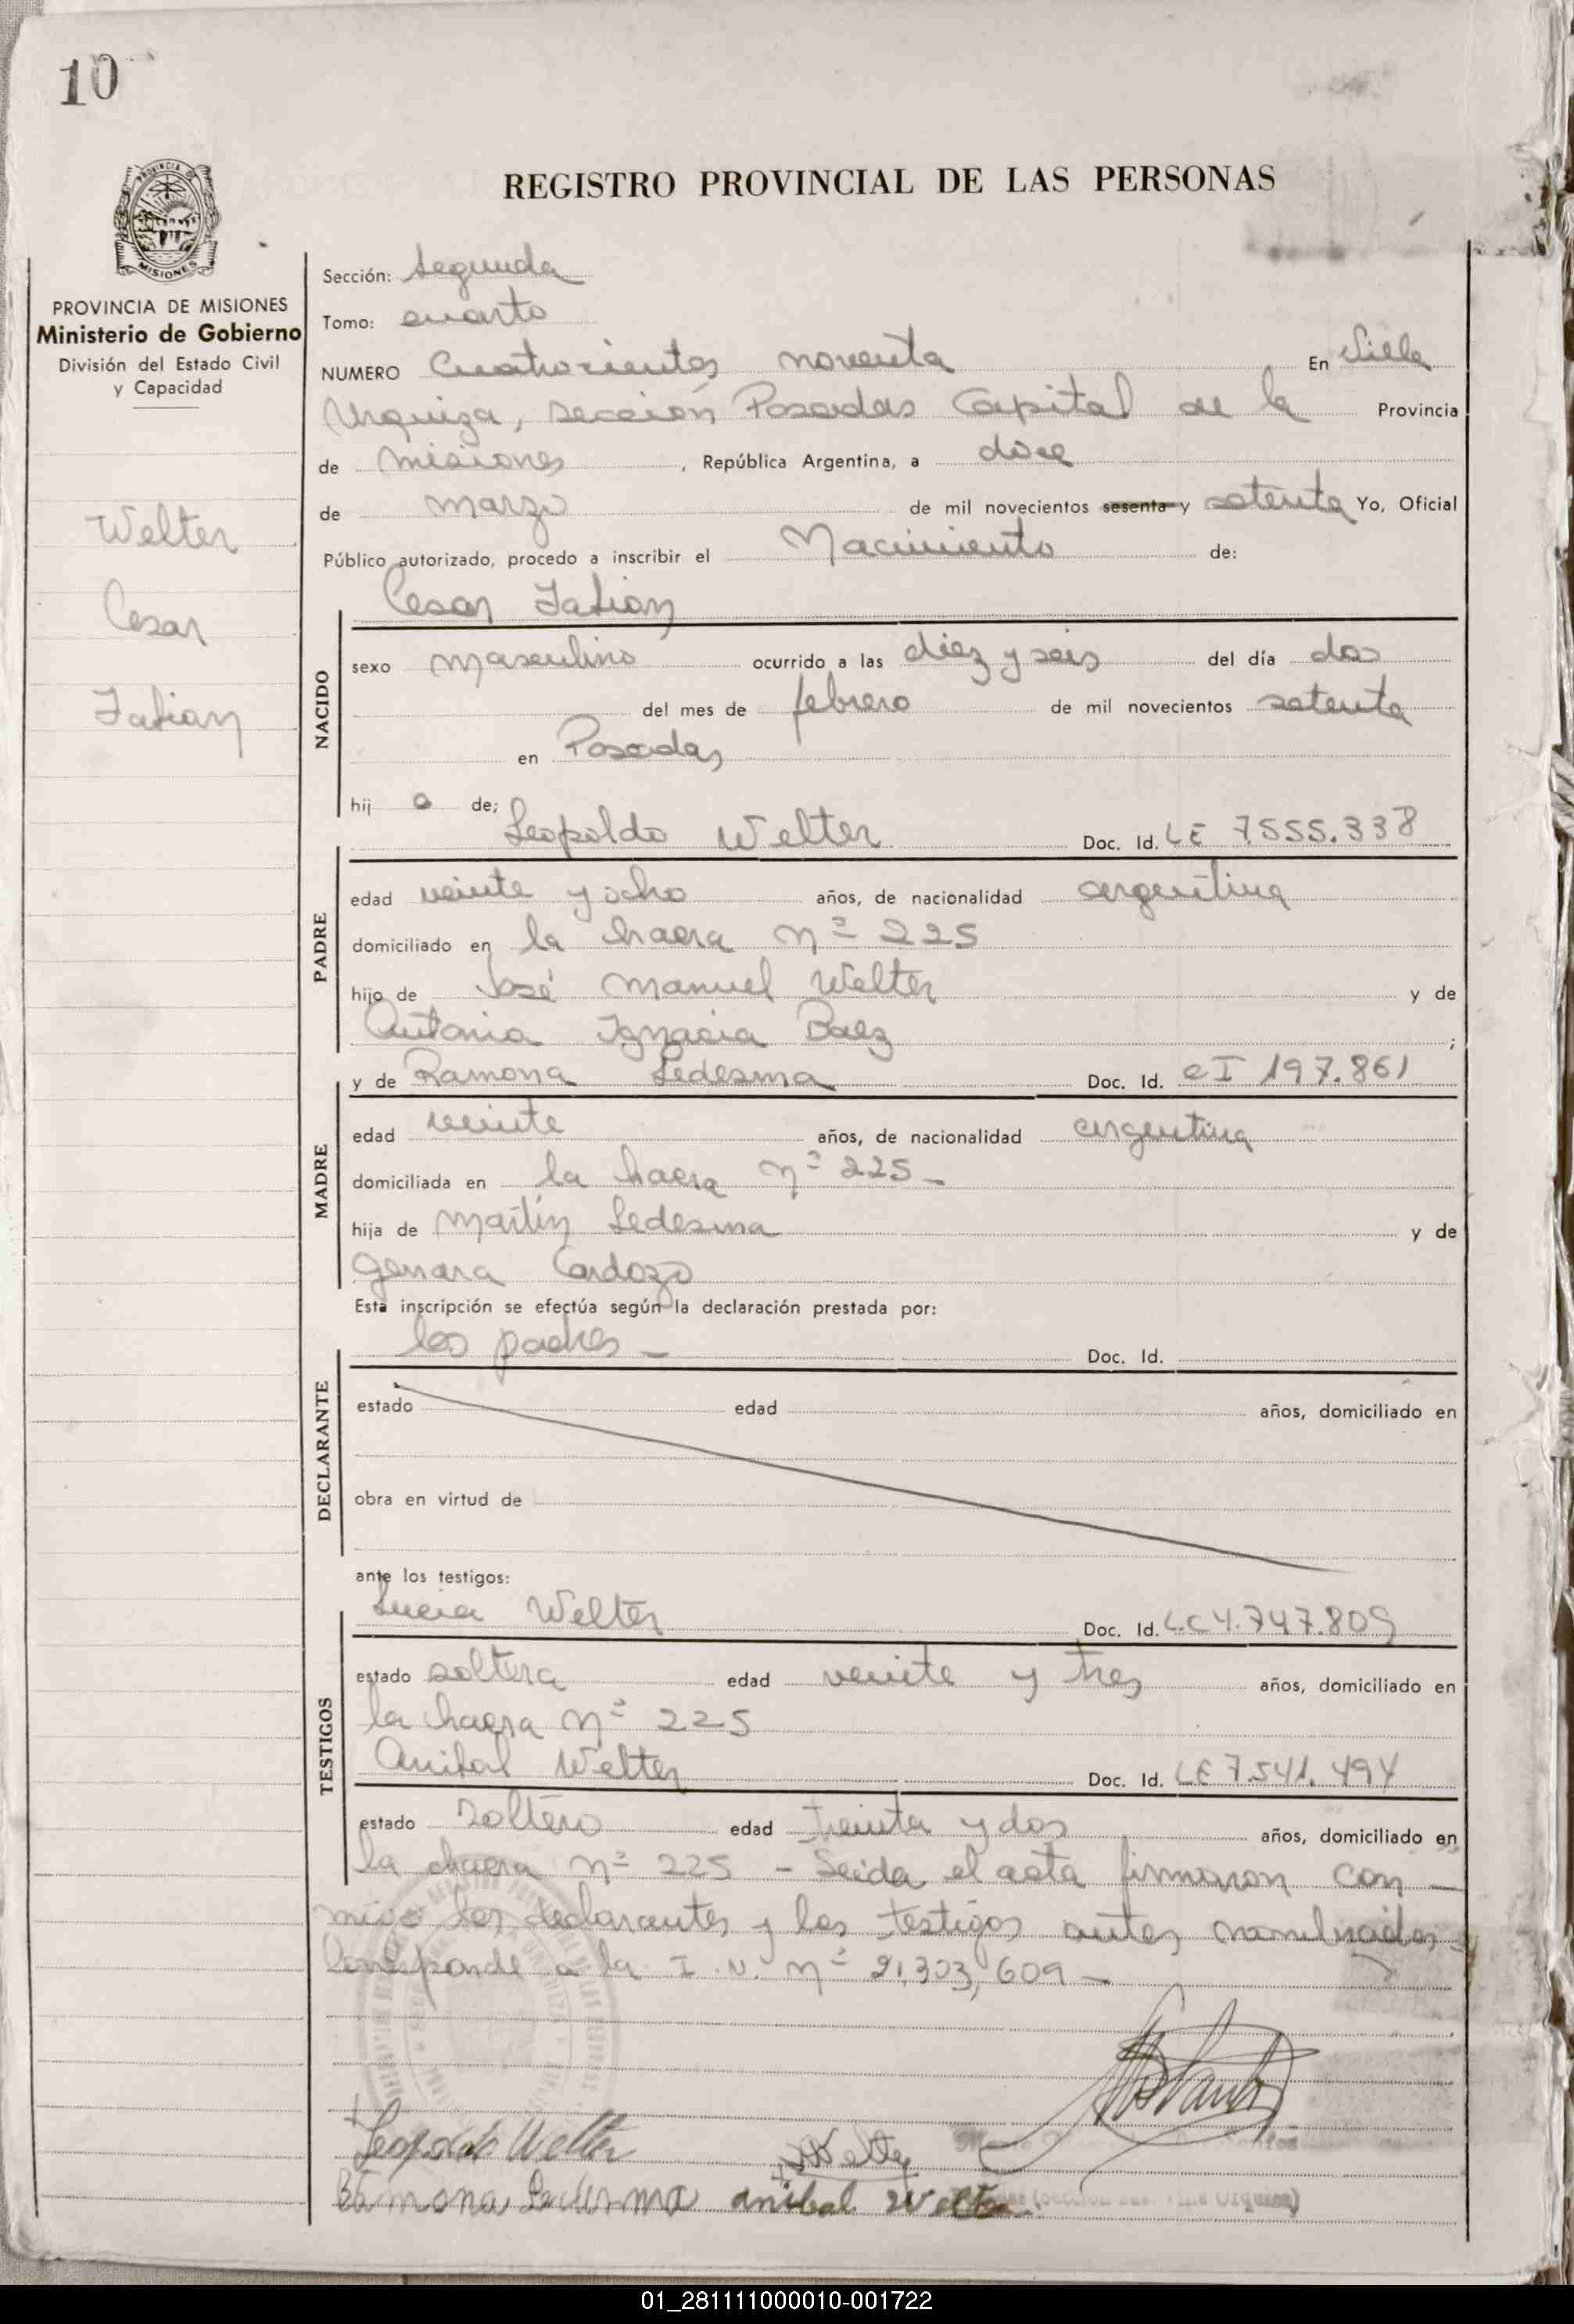 10
REGISTRO PROVINCIAL DE LAS PERSONAS
PROVINCIA DE
MISIONES
PROVINCIA DE MISIONES
Ministerio de Gobierno
División del Estado Civil
y Capacidad
Welter
Cesar
Fabian
Sección: Segunda
Tomo: cuarto
NUMERO Cuatrocientos noventa En Villa
Urquiza, sección Posadas Capital de la Provincia
de Misiones, República Argentina, a doce
de marzo de mil novecientos sesenta y setenta Yo, Oficial
Público autorizado, procedo a inscribir el Nacimiento de:
Cesar Fabian
NACIDO
sexo masculino ocurrido a las diez y seis del día dos
del mes de febrero de mil novecientos setenta
en Posadas
hij o de;
Leopoldo Welter Doc. Id. LE 7.555.338
PADRE
edad veinte y ocho años, de nacionalidad argentina
domiciliado en la chacra nº 225
hijo de José Manuel Welter y de
Antonia Ignacia Baez ;
y de Ramona Ledesma Doc. Id. CI 197.861
MADRE
edad veinte años, de nacionalidad argentina
domiciliada en la chacra nº 225 -
hija de Martín Ledesma y de
Genara Cardozo
Esta inscripción se efectúa según la declaración prestada por:
los padres - Doc. Id.
DECLARANTE
estado edad años, domiciliado en
obra en virtud de
ante los testigos:
Lucia Welter Doc. Id. L.C 4.747.809
TESTIGOS
estado soltera edad veinte y tres años, domiciliado en
la chacra nº 225
Anibal Welter Doc. Id. LE 7.541.494
estado soltero edad treinta y dos años, domiciliado en
la chacra nº 225 - Leida el acta firmaron con -
migo los declarantes y los testigos antes nombrados.
Corresponde a la I. N. nº 21,303,609 -
Leopoldo Welter
LWelter
Ramona Ledesma anibal Welter
01_281111000010-001722